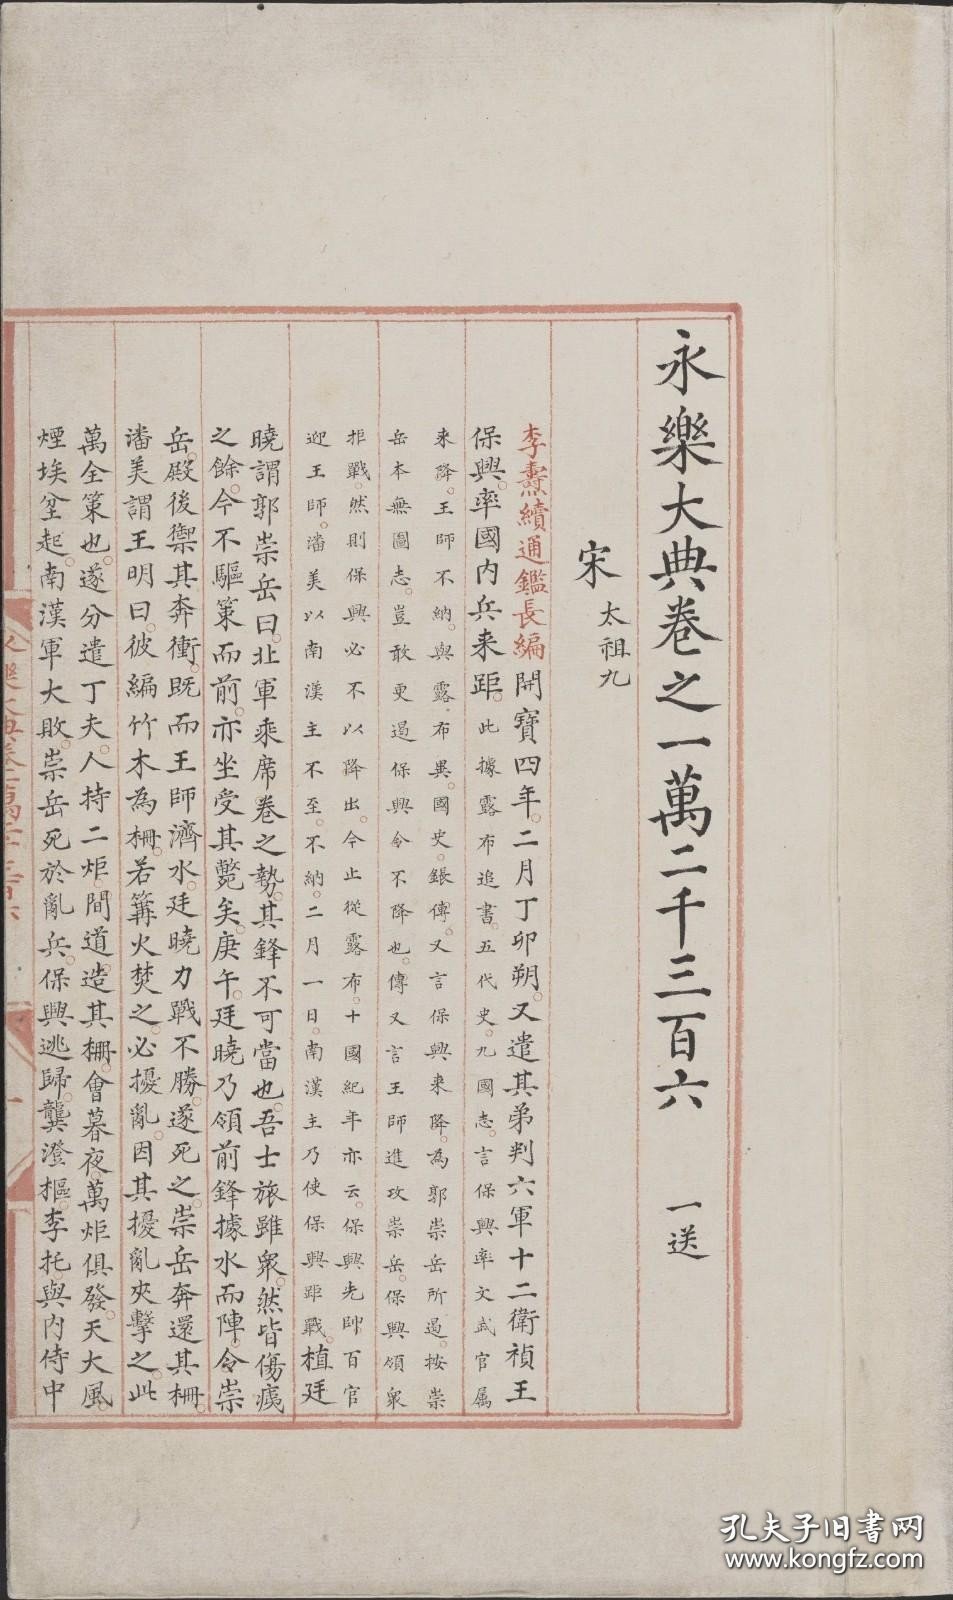 永樂大典卷之一萬二千三百六 一送
宋 太祖九
李燾續通鑑長編開寶四年。二月丁卯朔。又遣其弟判六軍十二衛禎王
保興。率國内兵来距。此據露布追書。五代史。九國志。言保興率文武官属
来降。王師不納。與露布異。國史。鋹傳。又言保興来降。為郭崇岳所遏。按崇
岳本無圖志。豈敢更遏保興令不降也。傳又言王師進攻崇岳。保興領衆
拒戰。然則保興必不以降出。今止從露布。十國紀年亦云。保興先帥百官
迎王師。潘美以南漢主不至。不納。二月一日。南漢主乃使保興距戰。植廷
曉謂郭崇岳曰。北軍乘席卷之勢。其鋒不可當也。吾士旅雖衆。然皆傷痍
之餘。今不驅策而前。亦坐受其斃矣。庚午。廷曉乃領前鋒據水而陣。令崇
岳。殿後禦其奔衝。既而王師濟水。廷曉力戰不勝。遂死之。崇岳奔還其柵。
潘美謂王明曰。彼編竹木為柵。若篝火焚之。必擾亂。因其擾亂夾擊之。此
萬全策也。遂分遣丁夫。人持二炬。間道造其柵。會暮夜。萬炬俱發。天大風。
煙埃坌起。南漢軍大敗。崇岳死於亂兵。保興逃歸。龔澄樞。李托。與内侍中
孔夫子旧书网
www.kongfz.com